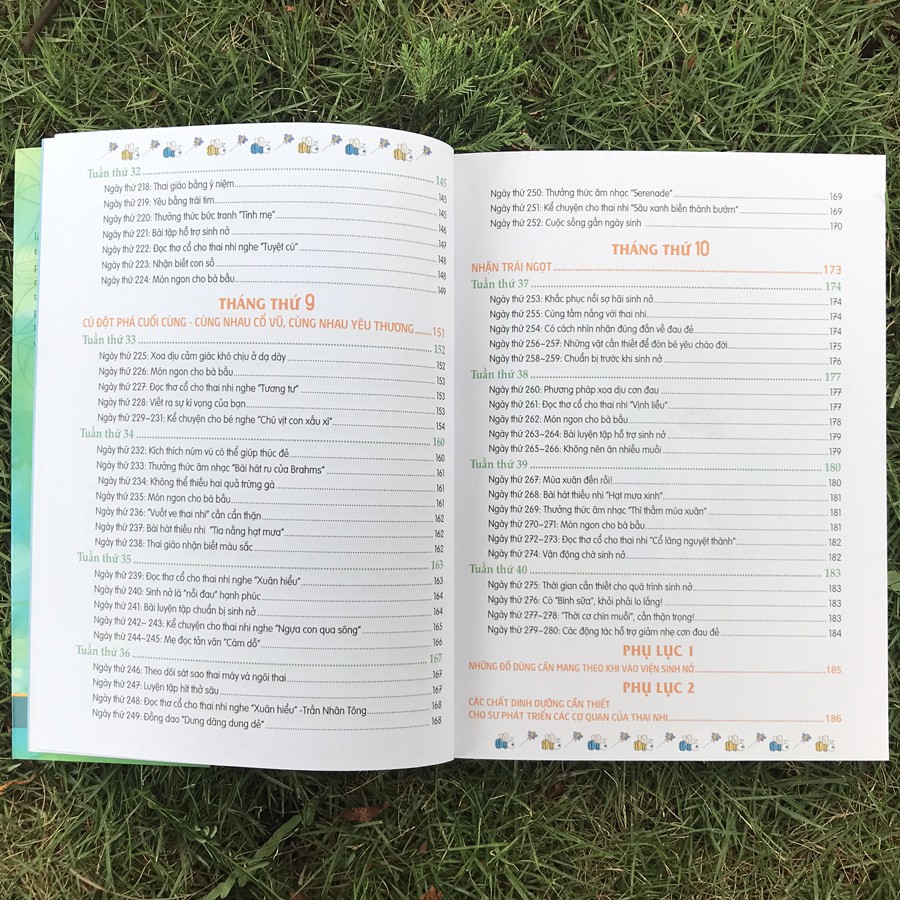 Tuần thứ 32 ... 145
Ngày thứ 218: Thai giáo bằng ý niệm ... 145
Ngày thứ 219: Yêu bằng trái tim ... 145
Ngày thứ 220: Thưởng thức bức tranh "Tình mẹ" ... 145
Ngày thứ 221: Bài tập hỗ trợ sinh nở ... 146
Ngày thứ 222: Đọc thơ cổ cho thai nhi nghe "Tuyệt cú" ... 147
Ngày thứ 223: Nhận biết con số ... 148
Ngày thứ 224: Món ngon cho bà bầu ... 149
THÁNG THỨ 9
CÚ ĐỘT PHÁ CUỐI CÙNG - CÙNG NHAU CỔ VŨ, CÙNG NHAU YÊU THƯƠNG ... 151
Tuần thứ 33 ... 152
Ngày thứ 225: Xoa dịu cảm giác khó chịu ở dạ dày ... 152
Ngày thứ 226: Món ngon cho bà bầu ... 153
Ngày thứ 227: Đọc thơ cổ cho thai nhi nghe "Tương tư" ... 153
Ngày thứ 228: Viết ra sự kì vọng của bạn ... 153
Ngày thứ 229~231: Kể chuyện cho bé nghe "Chú vịt con xấu xí" ... 154
Tuần thứ 34 ... 160
Ngày thứ 232: Kích thích núm vú có thể giúp thúc đẻ ... 160
Ngày thứ 233: Thưởng thức âm nhạc "Bài hát ru của Brahms" ... 161
Ngày thứ 234: Không thể thiếu hai quả trứng gà ... 161
Ngày thứ 235: Món ngon cho bà bầu ... 161
Ngày thứ 236: "Vuốt ve thai nhi" cần cẩn thận ... 162
Ngày thứ 237: Bài hát thiếu nhi "Tia nắng hạt mưa" ... 162
Ngày thứ 238: Thai giáo nhận biết màu sắc ... 162
Tuần thứ 35 ... 163
Ngày thứ 239: Đọc thơ cổ cho thai nhi nghe "Xuân hiểu" ... 163
Ngày thứ 240: Sinh nở là "nỗi đau" hạnh phúc ... 164
Ngày thứ 241: Bài luyện tập chuẩn bị sinh nở ... 164
Ngày thứ 242~ 243: Kể chuyện cho thai nhi nghe "Ngựa con qua sông" ... 165
Ngày thứ 244~245: Mẹ đọc tản văn "Cám dỗ" ... 166
Tuần thứ 36 ... 167
Ngày thứ 246: Theo dõi sát sao thai máy và ngôi thai ... 167
Ngày thứ 247: Luyện tập hít thở sâu ... 167
Ngày thứ 248: Đọc thơ cổ cho thai nhi nghe "Xuân hiểu" -Trần Nhân Tông ... 168
Ngày thứ 249: Đồng dao "Dung dăng dung dẻ" ... 168
Ngày thứ 250: Thưởng thức âm nhạc "Serenade" ... 169
Ngày thứ 251: Kể chuyện cho thai nhi "Sâu xanh biến thành bướm" ... 169
Ngày thứ 252: Cuộc sống gần ngày sinh ... 170
THÁNG THỨ 10
NHẬN TRÁI NGỌT ... 173
Tuần thứ 37 ... 174
Ngày thứ 253: Khắc phục nỗi sợ hãi sinh nở ... 174
Ngày thứ 255: Cùng tắm nắng với thai nhi ... 174
Ngày thứ 254: Có cách nhìn nhận đúng đắn về đau đẻ ... 174
Ngày thứ 256~257: Những vật cần thiết để đón bé yêu chào đời ... 175
Ngày thứ 258~259: Chuẩn bị trước khi sinh nở ... 176
Tuần thứ 38 ... 177
Ngày thứ 260: Phương pháp xoa dịu cơn đau ... 177
Ngày thứ 261: Đọc thơ cổ cho thai nhi "Vịnh liễu" ... 177
Ngày thứ 262: Món ngon cho bà bầu ... 178
Ngày thứ 263~264: Bài luyện tập hỗ trợ sinh nở ... 179
Ngày thứ 265~266: Không nên ăn nhiều muối ... 179
Tuần thứ 39 ... 180
Ngày thứ 267: Mùa xuân đến rồi! ... 180
Ngày thứ 268: Bài hát thiếu nhi "Hạt mưa xinh" ... 181
Ngày thứ 269: Thưởng thức âm nhạc "Thì thầm mùa xuân" ... 181
Ngày thứ 270~271: Món ngon cho bà bầu ... 181
Ngày thứ 272~273: Đọc thơ cổ cho thai nhi "Cổ lãng nguyệt thành" ... 182
Ngày thứ 274: Vận động chờ sinh nở ... 182
Tuần thứ 40 ... 183
Ngày thứ 275: Thời gian cần thiết cho quá trình sinh nở ... 183
Ngày thứ 276: Có "Bình sữa", khỏi phải lo lắng! ... 183
Ngày thứ 277~278: "Thời cơ chín muồi", cẩn thận trọng! ... 183
Ngày thứ 279~280: Các động tác hỗ trợ giảm nhẹ cơn đau đẻ ... 184
PHỤ LỤC 1
NHỮNG ĐỒ DÙNG CẦN MANG THEO KHI VÀO VIỆN SINH NỞ ... 185
PHỤ LỤC 2
CÁC CHẤT DINH DƯỠNG CẦN THIẾT
CHO SỰ PHÁT TRIỂN CÁC CƠ QUAN CỦA THAI NHI ... 186